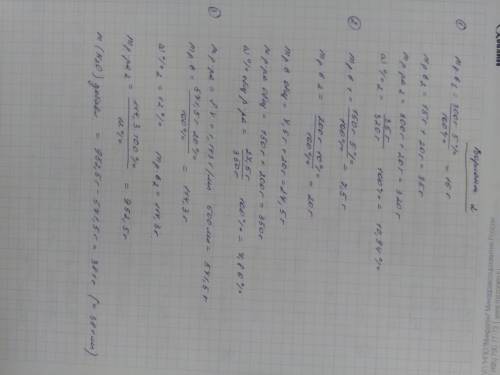 Вариант 2
①
m р.в1 = 300г · 5% / 100% = 15 г
m р.в2 = 15г + 20г = 35г
m р-ра2 = 300г + 20г = 320г
ω% 2 = 35г / 320г · 100% = 10,94%
②
m р.в1 = 150г · 5% / 100% = 7,5г
m р.в2 = 200г · 10% / 100% = 20г
m р.в общ = 7,5г + 20г = 27,5г
m р-ра общ = 150г + 200г = 350г
ω% общ р-ра = 27,5г / 350г · 100% = 7,86%
③
m р-ра = ρ·V = 1,143 г/мл · 500 мл = 571,5 г
m р.в1 = 571,5г · 20% / 100% = 114,3г
ω% 2 = 12% m р.в2 = 114,3г
m р-ра2 = 114,3 · 100% / 12% = 952,5г
m(H2O) добав. = 952,5г - 571,5г = 381г (= 381мл)